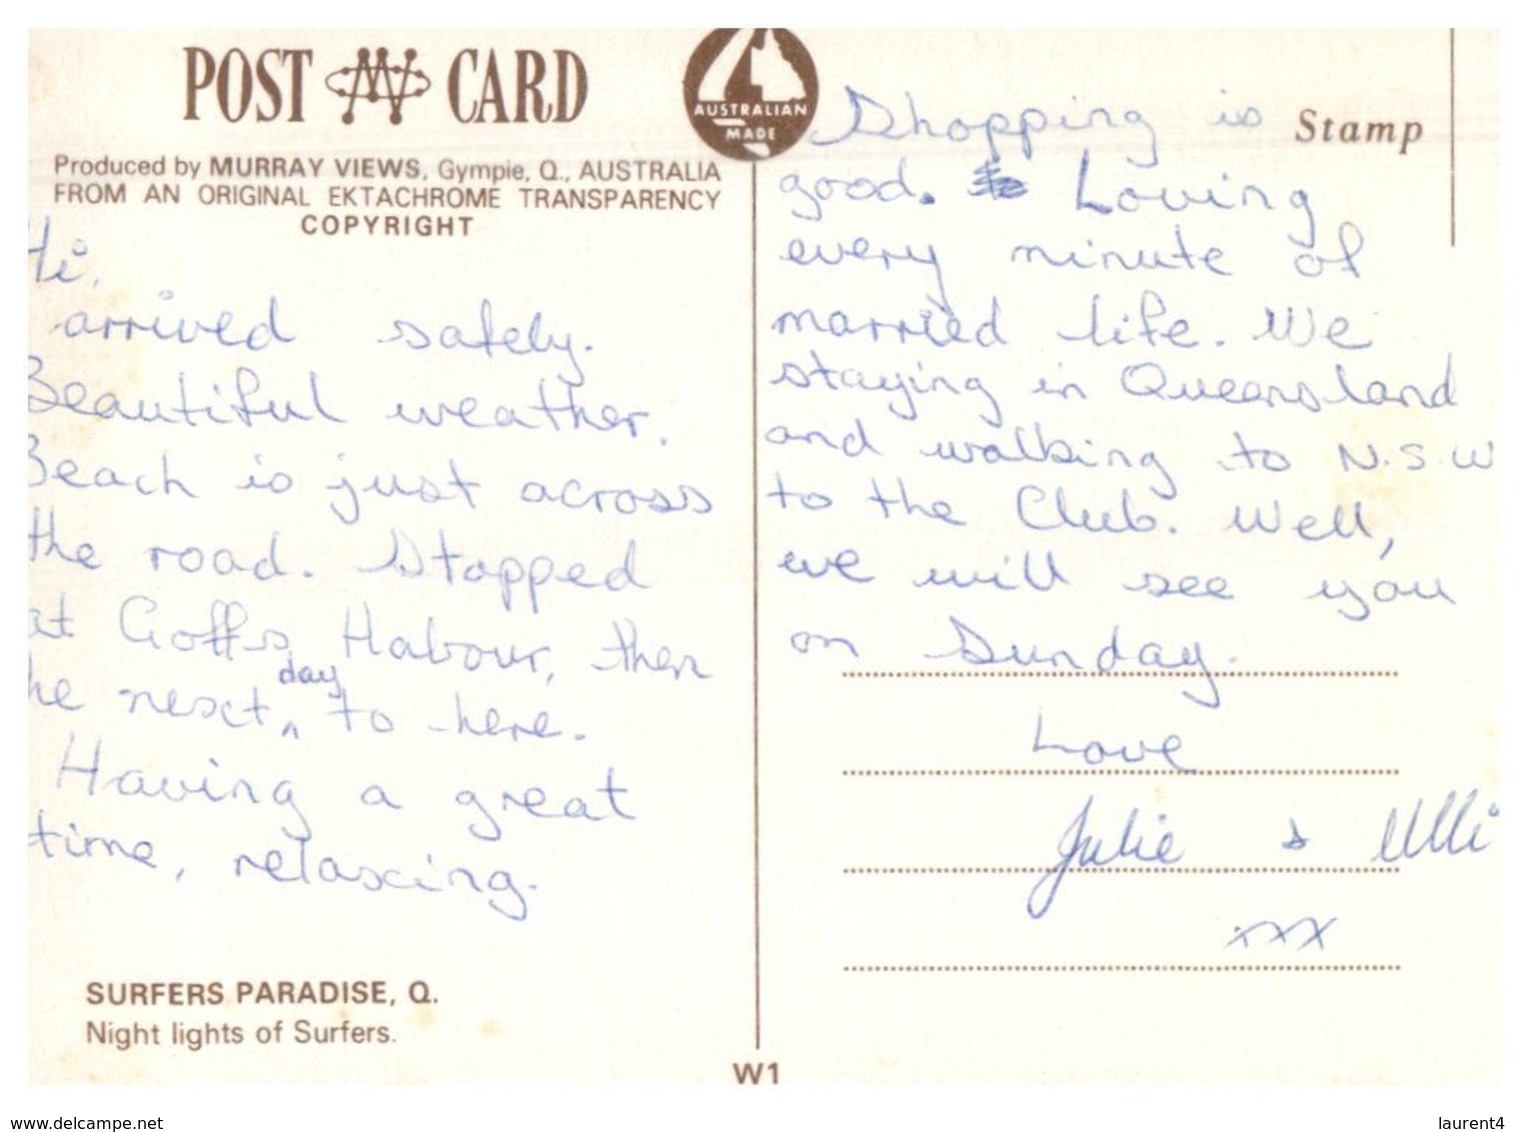 POST CARD
AUSTRALIAN
MADE
Stamp
Produced by MURRAY VIEWS, Gympie, Q., AUSTRALIA
FROM AN ORIGINAL EKTACHROME TRANSPARENCY
COPYRIGHT
Hi,
arrived safely.
Beautiful weather.
Beach is just across
the road. Stopped
at Goffs Habour, then
he next day to here.
Having a great
time, relaxing.
SURFERS PARADISE, Q.
Night lights of Surfers.
Shopping is
good. Loving
every minute of
married life. We
staying in Queensland
and walking to N.S.W
to the Club. Well,
we will see you
on Sunday.
Love
Julie & Ulli
xxx
W1
www.delcampe.net
laurent4